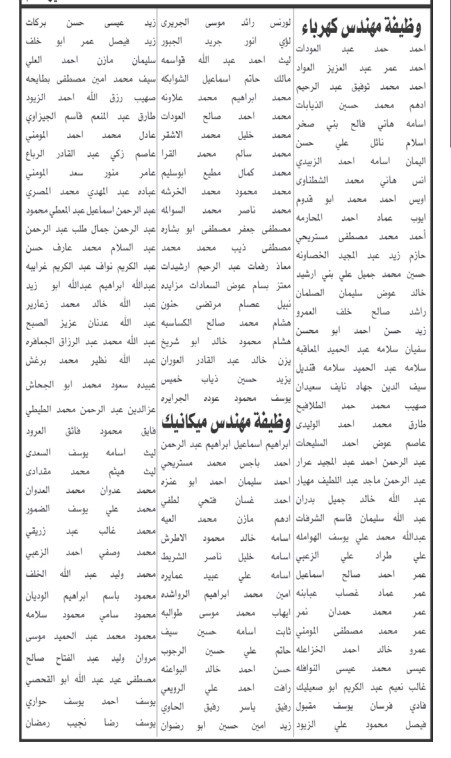 وظيفة مهندس كهرباء
احمد حمد عيد العودات
احمد عمر عبد العزيز العواد
احمد محمد توفيق عبد الرحيم
ادهم محمد حسين الذيابات
اسامه هاني فالح بني صخر
اسلام نائل علي حسن
اليمان اسامه احمد الزبيدي
انس هاني محمد الشطناوى
اويس احمد محمد ابو قدوم
ايوب عماد احمد المحارمه
أحمد محمد مصطفى مستريحي
حازم زيد عبد المجيد الخصاونه
حسين محمد جميل علي بني ارشيد
خالد عوض سليمان الصلمان
راشد صالح خلف العمرو
زيد حسن احمد ابو محسن
سفيان سلامه عبد الحميد المعاقبه
سلامه عبد الحميد سلامه قنديل
سيف الدين جهاد نايف سعيدان
صهيب محمد حمد الطلافيح
طارق محمد احمد الوليدى
عاصم عوض احمد السليحات
عبد الرحمن احمد عبد المجيد عرار
عبد الرحمن ماجد عبد اللطيف مهيار
عبد الله خالد جميل بدران
عبد الله سليمان قاسم الشرفات
عبدالله محمد علي يوسف الهوامله
علي طراد علي الزعبي
عمر احمد صالح اسماعيل
عمر عماد غصاب عبابنه
عمر محمد حمدان نمر
عمر محمد مصطفى المومني
عمرو خالد احمد الخزاعله
عيسى محمد عيسى النوافله
غالب نعيم عبد الكريم ابو صعيليك
فادي فرسان يوسف مقبول
فيصل محمود علي الزيود
لورنس رائد موسى الجريرى
لؤي انور جريد الجبور
ليث احمد عبد الله قواسمه
مالك حاتم اسماعيل الشوابكه
محمد ابراهيم محمد علاونه
محمد احمد صالح العودات
محمد خليل محمد الاشقر
محمد سالم محمد القرا
محمد كمال مطيع ابوسليم
محمد محمود محمد الخرشه
محمد ناصر محمد السوالمه
مصطفى جعفر مصطفى ابو بشاره
مصطفى ذيب محمد محمد
معاذ رفعات عبد الرحيم ارشيدات
معتز بسام عوض السعادات مزايده
نبيل عصام مرتضى حنون
هشام محمد صالح الكساسبه
هشام محمود خالد ابو شريخ
يزن خالد عبد القادر العوران
يزيد حسين ذياب خميس
يوسف محمود عوده الجرايره
وظيفة مهندس ميكانيك
ابراهيم اسماعيل ابراهيم عبد الرحمن
احمد باجس محمد مستريحي
احمد سليمان احمد ابو عنزه
احمد غسان فتحي لطفي
ادهم مازن محمد العيه
اسامه خالد محمود الاطرش
اسامه خليل ناصر الشريط
اسامه علي عبيد عمايره
امين محمد ابراهيم الرواشده
ايهاب محمد موسى طوالبه
ثابت اسامه حسين سيف
حاتم علي حسين الرجوب
حسن احمد خالد البواعنه
رافت احمد علي الرويعي
رفيق ياسر رفيق الحاوي
زيد امين حسين ابو رضوان
زيد عيسى حسن بركات
زيد فيصل عمر ابو خلف
سليمان مازن احمد العلي
سيف محمد امين مصطفى بطايحه
صهيب رزق الله احمد الزيود
طارق عبد المنعم قاسم الجيزاوي
عادل محمد احمد المومني
عاصم زكي عبد القادر الرباع
عامر منور سعد المومني
عباده عبد المهدي محمد المصري
عبد الرحمن اسماعيل عبد المعطي محمود
عبد الرحمن جمال طلب عبد الرحمن
عبد السلام محمد عارف حسن
عبد الكريم نواف عبد الكريم غرايبه
عبدالله ابراهيم عبدالله ابو زيد
عبد الله خالد محمد زعارير
عبد الله عدنان عزيز الصبح
عبد الله محمد عبد الرزاق الجعافره
عبد الله نظير محمد برغش
عبيده سعود محمد ابو الجحاش
عزالدين عبد الرحمن محمد الطيطي
فايق محمود فائق العرود
ليث اسامه يوسف السعدى
ليث هيثم محمد مقدادى
محمد عدوان محمد العدوان
محمد علي يوسف الضمور
محمد غالب عيد زريقي
محمد وصفي احمد الزعبي
محمد وليد عبد الله الخلف
محمود باسم ابراهيم الوديان
محمود سامي محمود سلامه
محمود محمد عبد الحميد موسى
مروان وليد عبد الفتاح صالح
مصطفى عيد عبد الله ابو القحصي
يوسف احمد يوسف حوارى
يوسف رضا نجيب رمضان